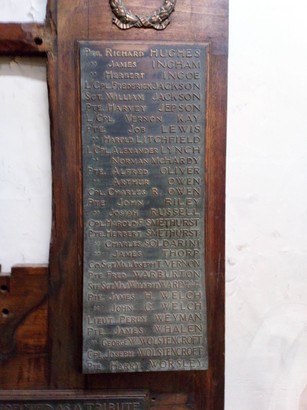 Pte. Richard HUGHES
" James INGHAM
" Herbert INGOE
L/Cpl Frederick JACKSON
Sgt. William JACKSON
Pte. Harvey JEPSON
L/Cpl. Vernon KAY
Pte. Job LEWIS
" Harold LITCHFIELD
L/Cpl. Alexander LYNCH
" Norman McHARDY
Pte. Alfred OLIVER
" Arthur OWEN
Cpl. Charles R. OWEN
Pte. John RILEY
" Josiah RUSSELL
Cpl. Harold E. SMETHURST
Pte. Herbert SMETHURST
" Charles SOLDARINI
" James THORP
Co. Sgt. Maj.
Pte. Fred WARBURTON
Co. Sgt. Maj. Wilfrid WARE
Pte. James H. WELCH
" John S. WELCH
Lieut. Percy WENMAN
Pte. James WHALEN
" George W. WOLSTENCROFT
Joseph WOLSTENCROFT
Pte. WORSLEY
AS A TRIBUTE